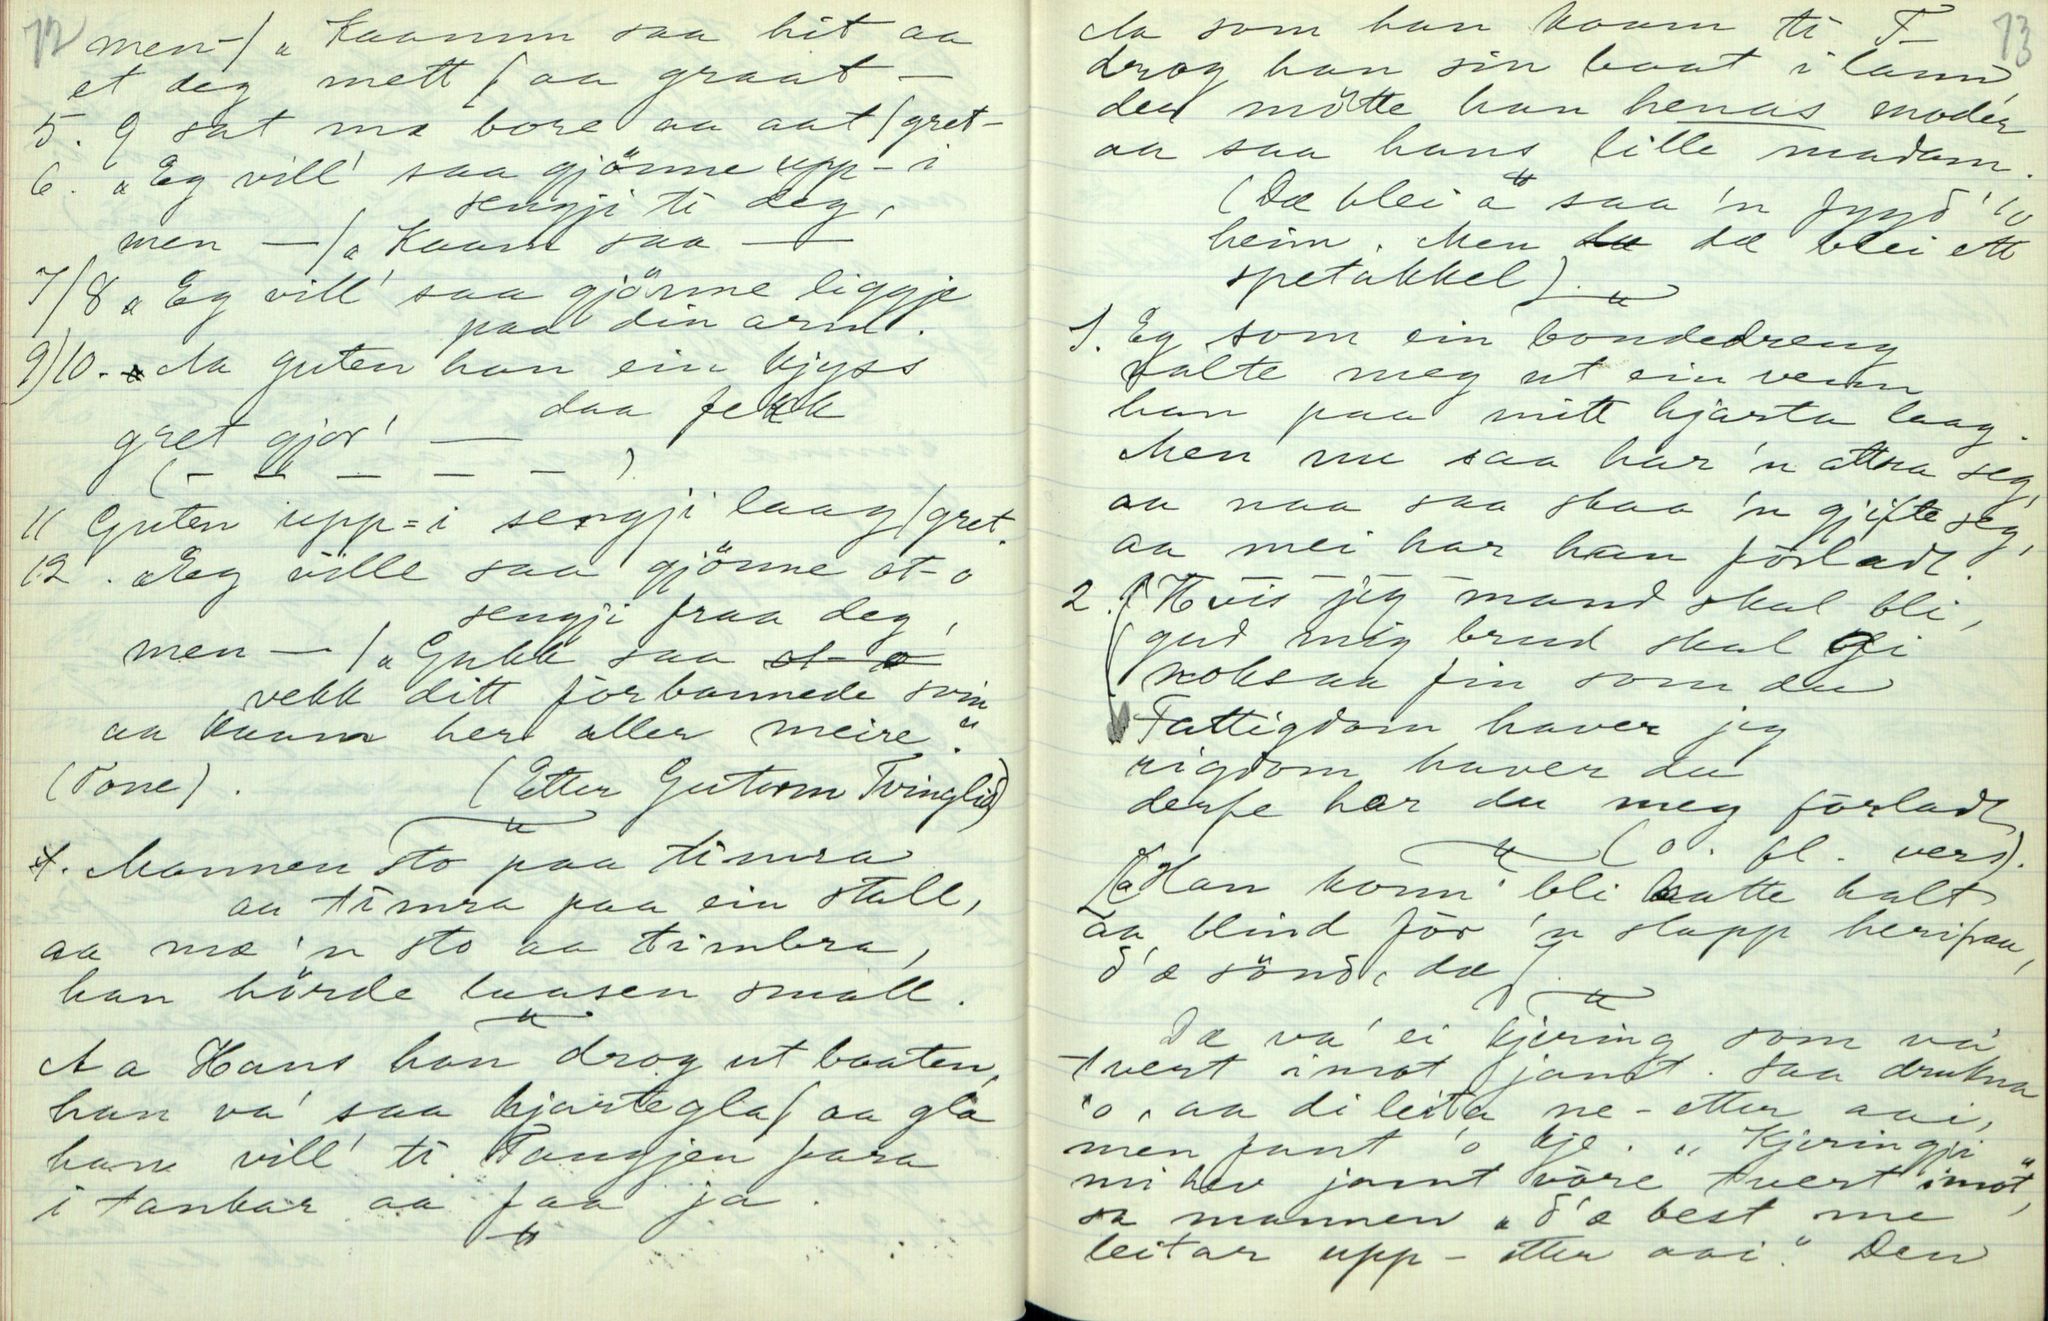 72
men-/„Kaamm saa hit aa
et deg mett / aa graat —
5. Ǫ sat mæ bore aa aat / gret-
6. „Eg vill' saa gjönne upp-i
sengji ti deg,
men — / „Kaam saa —
7/8 „Eg vill' saa gjönne liggje
paa din arm.
9)10. Aa guten han ein kjyss
daa fekk
gret gjor' —
(— — — — —)
11 Guten upp=i sengji laag / gret.
12. „Eg ville saa gjönne ot-o
sengji fraa deg,
men — / „Gakk saa ot-o
vekk ditt forbannede svin
aa kaam her aller meire."
(Tone). (Etter Gutorm Tvinglid)
1. Mannen sto paa timra
aa timra paa ein stall,
aa mæ 'n sto aa timbra,
han hörde laasen small.
Aa Hans han drog ut baaten,
han va' saa hjartegla / aa gla
han vill' ti Tangjen fara
i tankar aa faa ja.
73
Aa som han kaam ti T-
drog han sin baat i lann,
der mötte han henas moder
aa saa hans lille madam.
(Dæ blei å saa 'n fygd' 'o
heim. Men da dæ blei ett
spetakkel).
1. Eg som ein bondedreng
valte meg ut ein venn
han paa mitt hjarta laag.
Men nu saa har 'n attra seg,
aa naa saa skaa 'n gjifte seg,
aa mei har han forladt.
2. Hvis jeg mand skal bli,
gud mig brud skal gi
noksaa fin som du
Fattigdom haver jeg
rigdom haver du
derfe har du meg förladt
(o. fl. vers).
„Han konn' bli baatte halt
aa blind för 'n slapp herifraa,
d'æ sönd, dæ /.
Dæ va' ei kjering som va'
tvert imot jamt. Saa drukna
'o, aa di leita ne-etter aai,
men fant 'o kje. „Kjeringji
mi hev jamt vöre tvert imot,"
sa mannen „d'æ best me
leitar upp-etter aai." Den